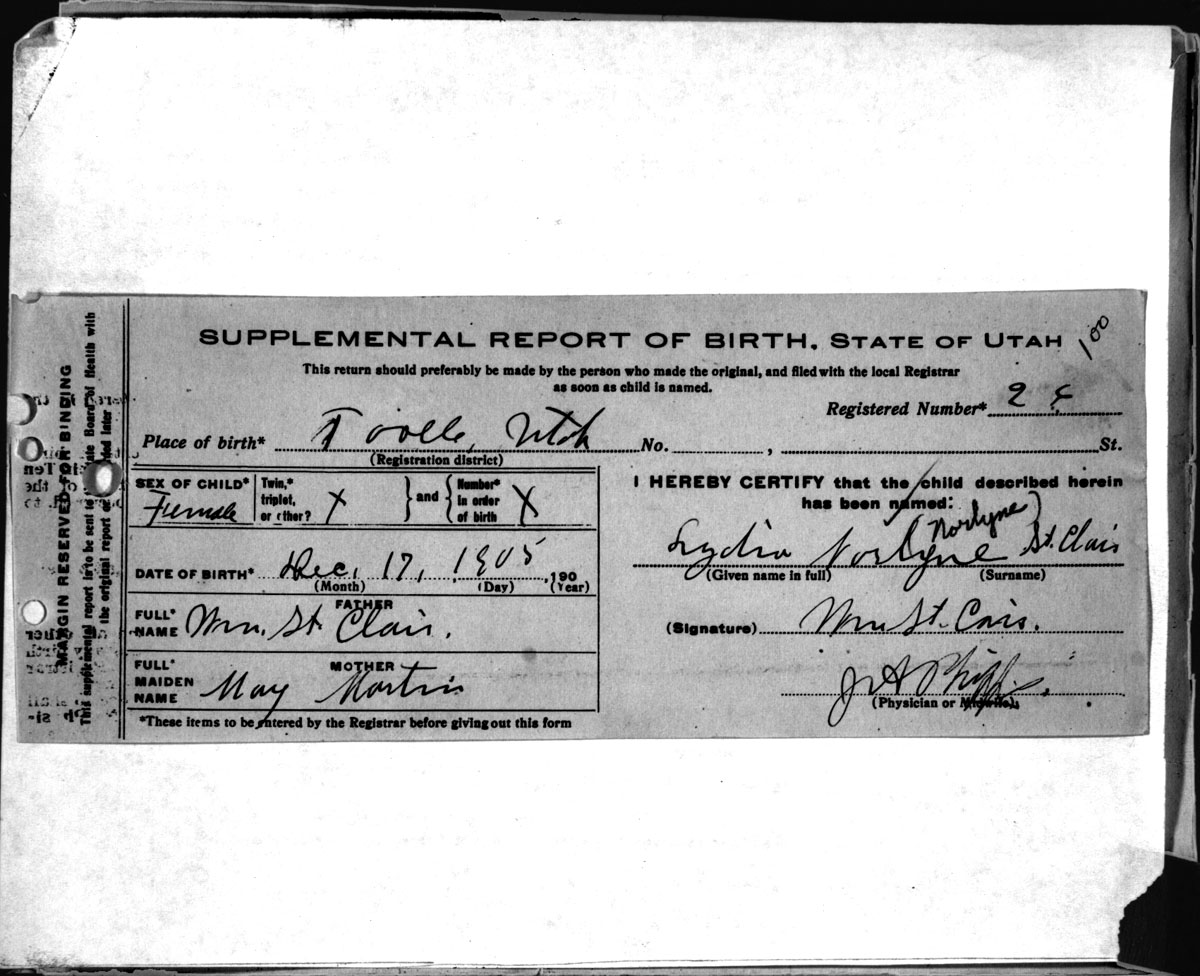 SUPPLEMENTAL REPORT OF BIRTH, STATE OF UTAH
100
This return should preferably be made by the person who made the original, and filed with the local Registrar
as soon as child is named.
Registered Number* 2
Place of birth* Tooele, Utah No. , St.
(Registration district)
SEX OF CHILD* Female
Twin,* triplet, or other? X
and
Number* in order of birth X
DATE OF BIRTH* Dec. 17, 1905, 190
(Month) (Day) (Year)
FATHER
FULL* NAME Wm. St. Clair.
MOTHER
FULL* MAIDEN NAME May Martin
*These items to be entered by the Registrar before giving out this form
I HEREBY CERTIFY that the child described herein
has been named:
Norlyne
Lydia Norlyne St. Clair
(Given name in full) (Surname)
(Signature) Wm St. Cair.
J A Phipps.
(Physician or Midwife)
MARGIN RESERVED FOR BINDING
This supplemental report is to be sent to State Board of Health with
the original report or later